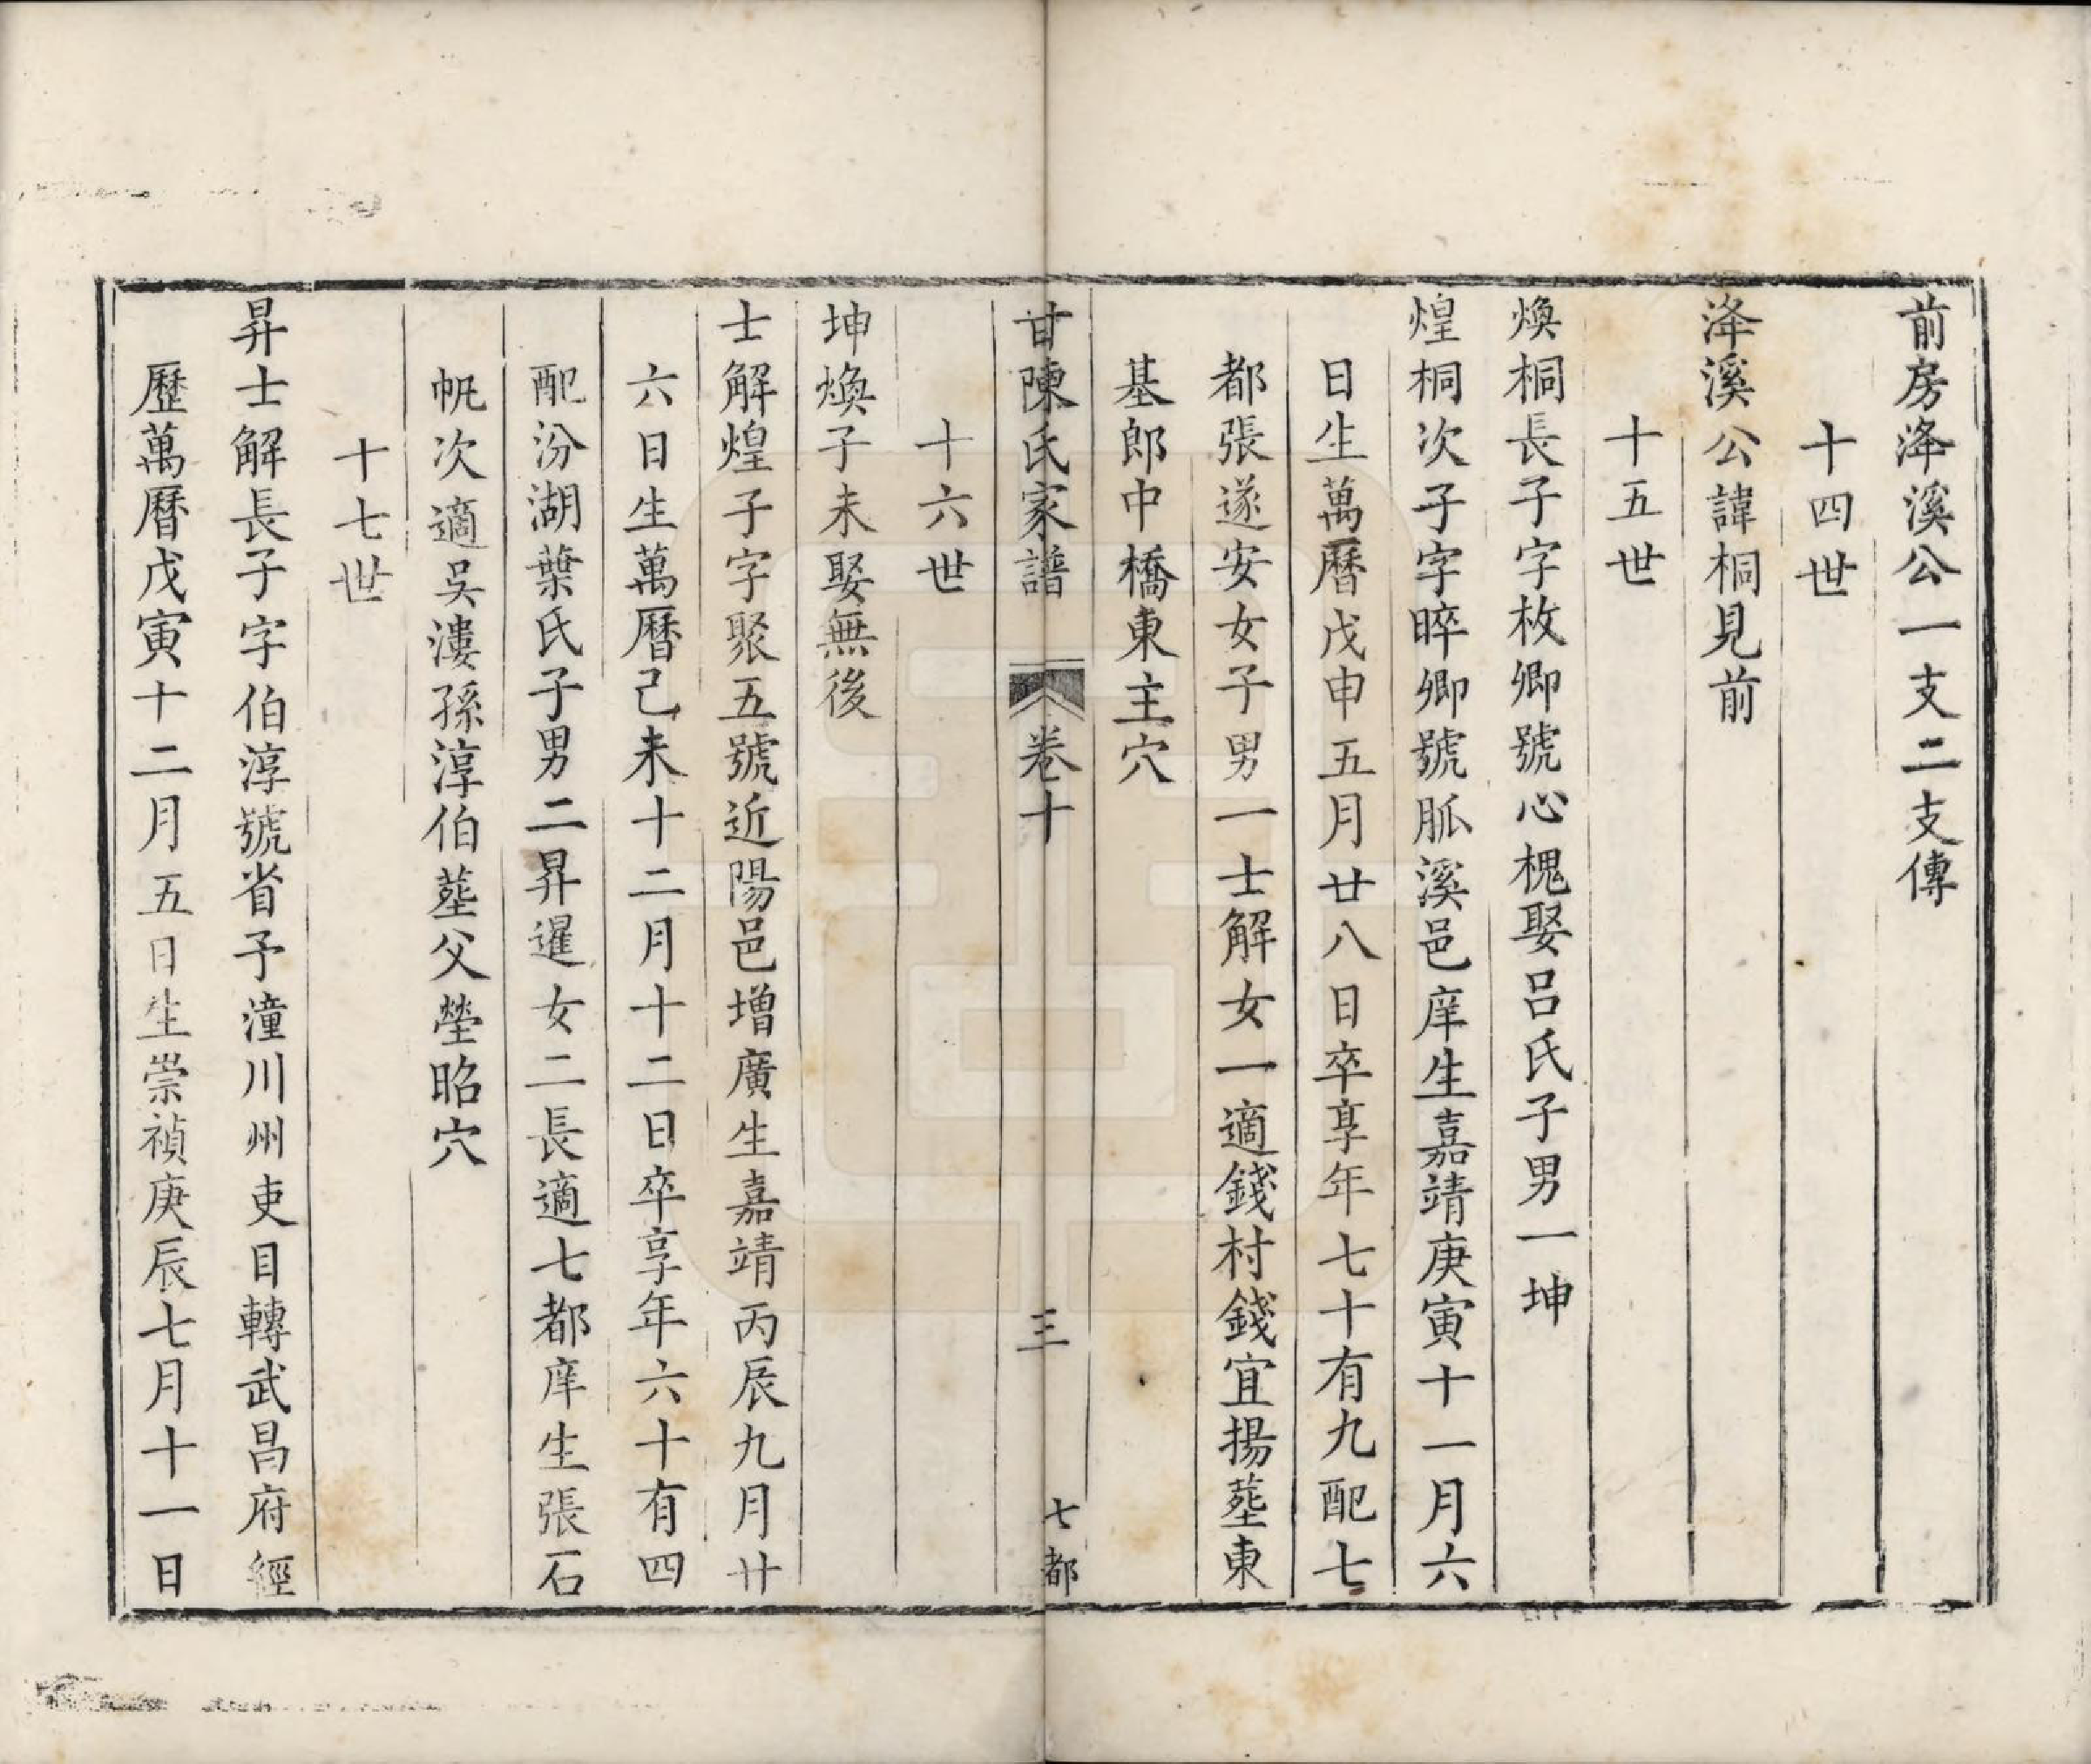 前房洚溪公一支二支傳
十四世
洚溪公諱桐見前
十五世
煥桐長子字枚卿號心槐娶呂氏子男一坤
煌桐次子字晬卿號脈溪邑庠生嘉靖庚寅十一月六
日生萬曆戊申五月廿八日卒享年七十有九配七
都張遂安女子男一士解女一適錢村錢宜揚塟東
基郎中橋東主穴
甘陳氏家譜 卷十 三 七都
十六世
坤煥子未娶無後
士解煌子字聚五號近陽邑增廣生嘉靖丙辰九月廿
六日生萬曆己未十二月十二日卒享年六十有四
配汾湖葉氏子男二昇暹女二長適七都庠生張石
帆次適吳漊孫淳伯塟父塋昭穴
十七世
昇士解長子字伯淳號省予潼川州吏目轉武昌府經
歷萬曆戊寅十二月五日生崇禎庚辰七月十一日